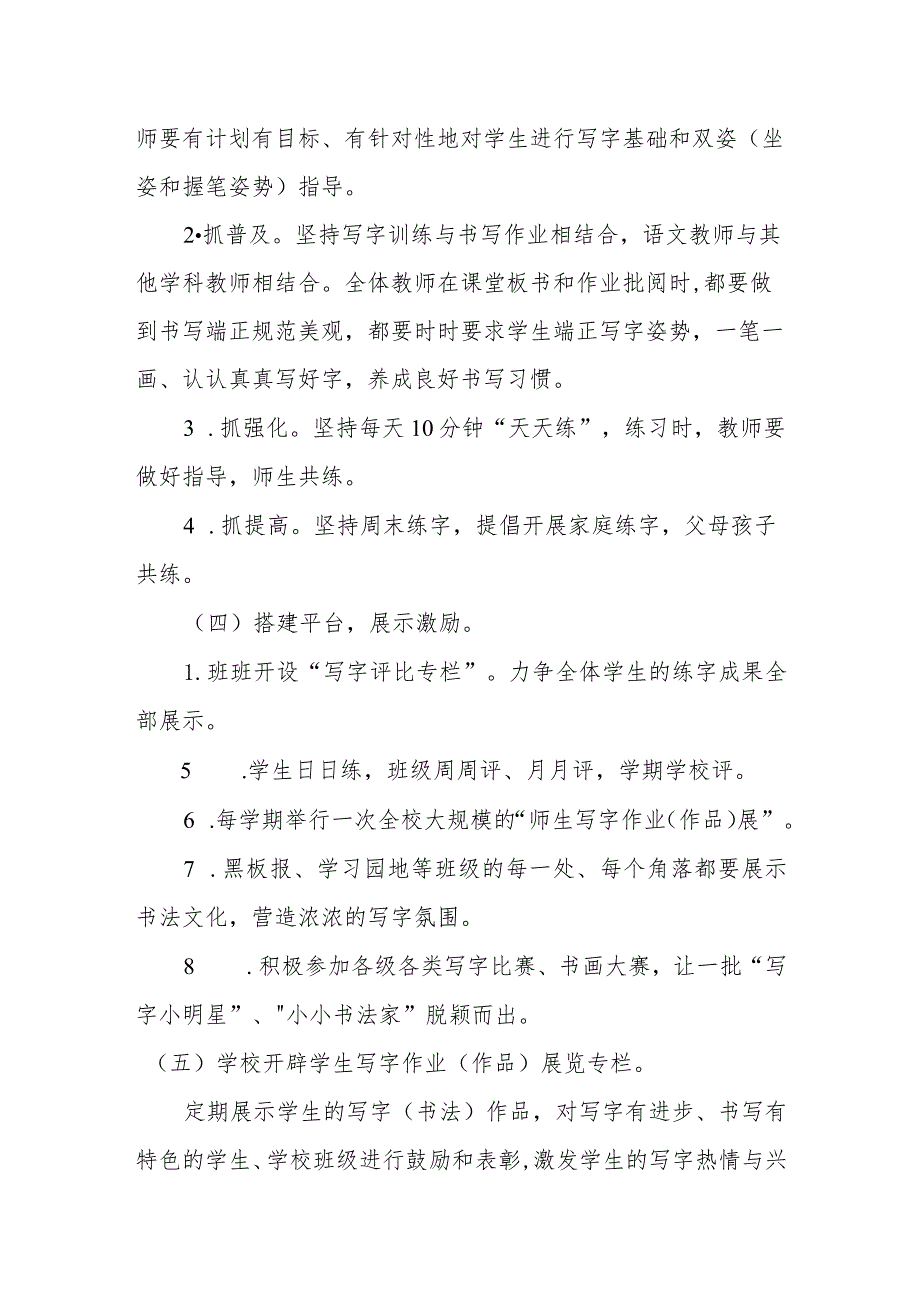 师要有计划有目标、有针对性地对学生进行写字基础和双姿（坐
姿和握笔姿势）指导。
2•抓普及。坚持写字训练与书写作业相结合，语文教师与其
他学科教师相结合。全体教师在课堂板书和作业批阅时,都要做
到书写端正规范美观，都要时时要求学生端正写字姿势，一笔一
画、认认真真写好字，养成良好书写习惯。
3 .抓强化。坚持每天10分钟“天天练”，练习时，教师要
做好指导，师生共练。
4 .抓提高。坚持周末练字，提倡开展家庭练字，父母孩子
共练。
（四）搭建平台，展示激励。
1.班班开设“写字评比专栏”。力争全体学生的练字成果全
部展示。
5 .学生日日练，班级周周评、月月评，学期学校评。
6 .每学期举行一次全校大规模的“师生写字作业（作品）展”。
7 .黑板报、学习园地等班级的每一处、每个角落都要展示
书法文化，营造浓浓的写字氛围。
8 .积极参加各级各类写字比赛、书画大赛，让一批“写
字小明星”、"小小书法家”脱颖而出。
（五）学校开辟学生写字作业（作品）展览专栏。
定期展示学生的写字（书法）作品，对写字有进步、书写有
特色的学生、学校班级进行鼓励和表彰,激发学生的写字热情与兴